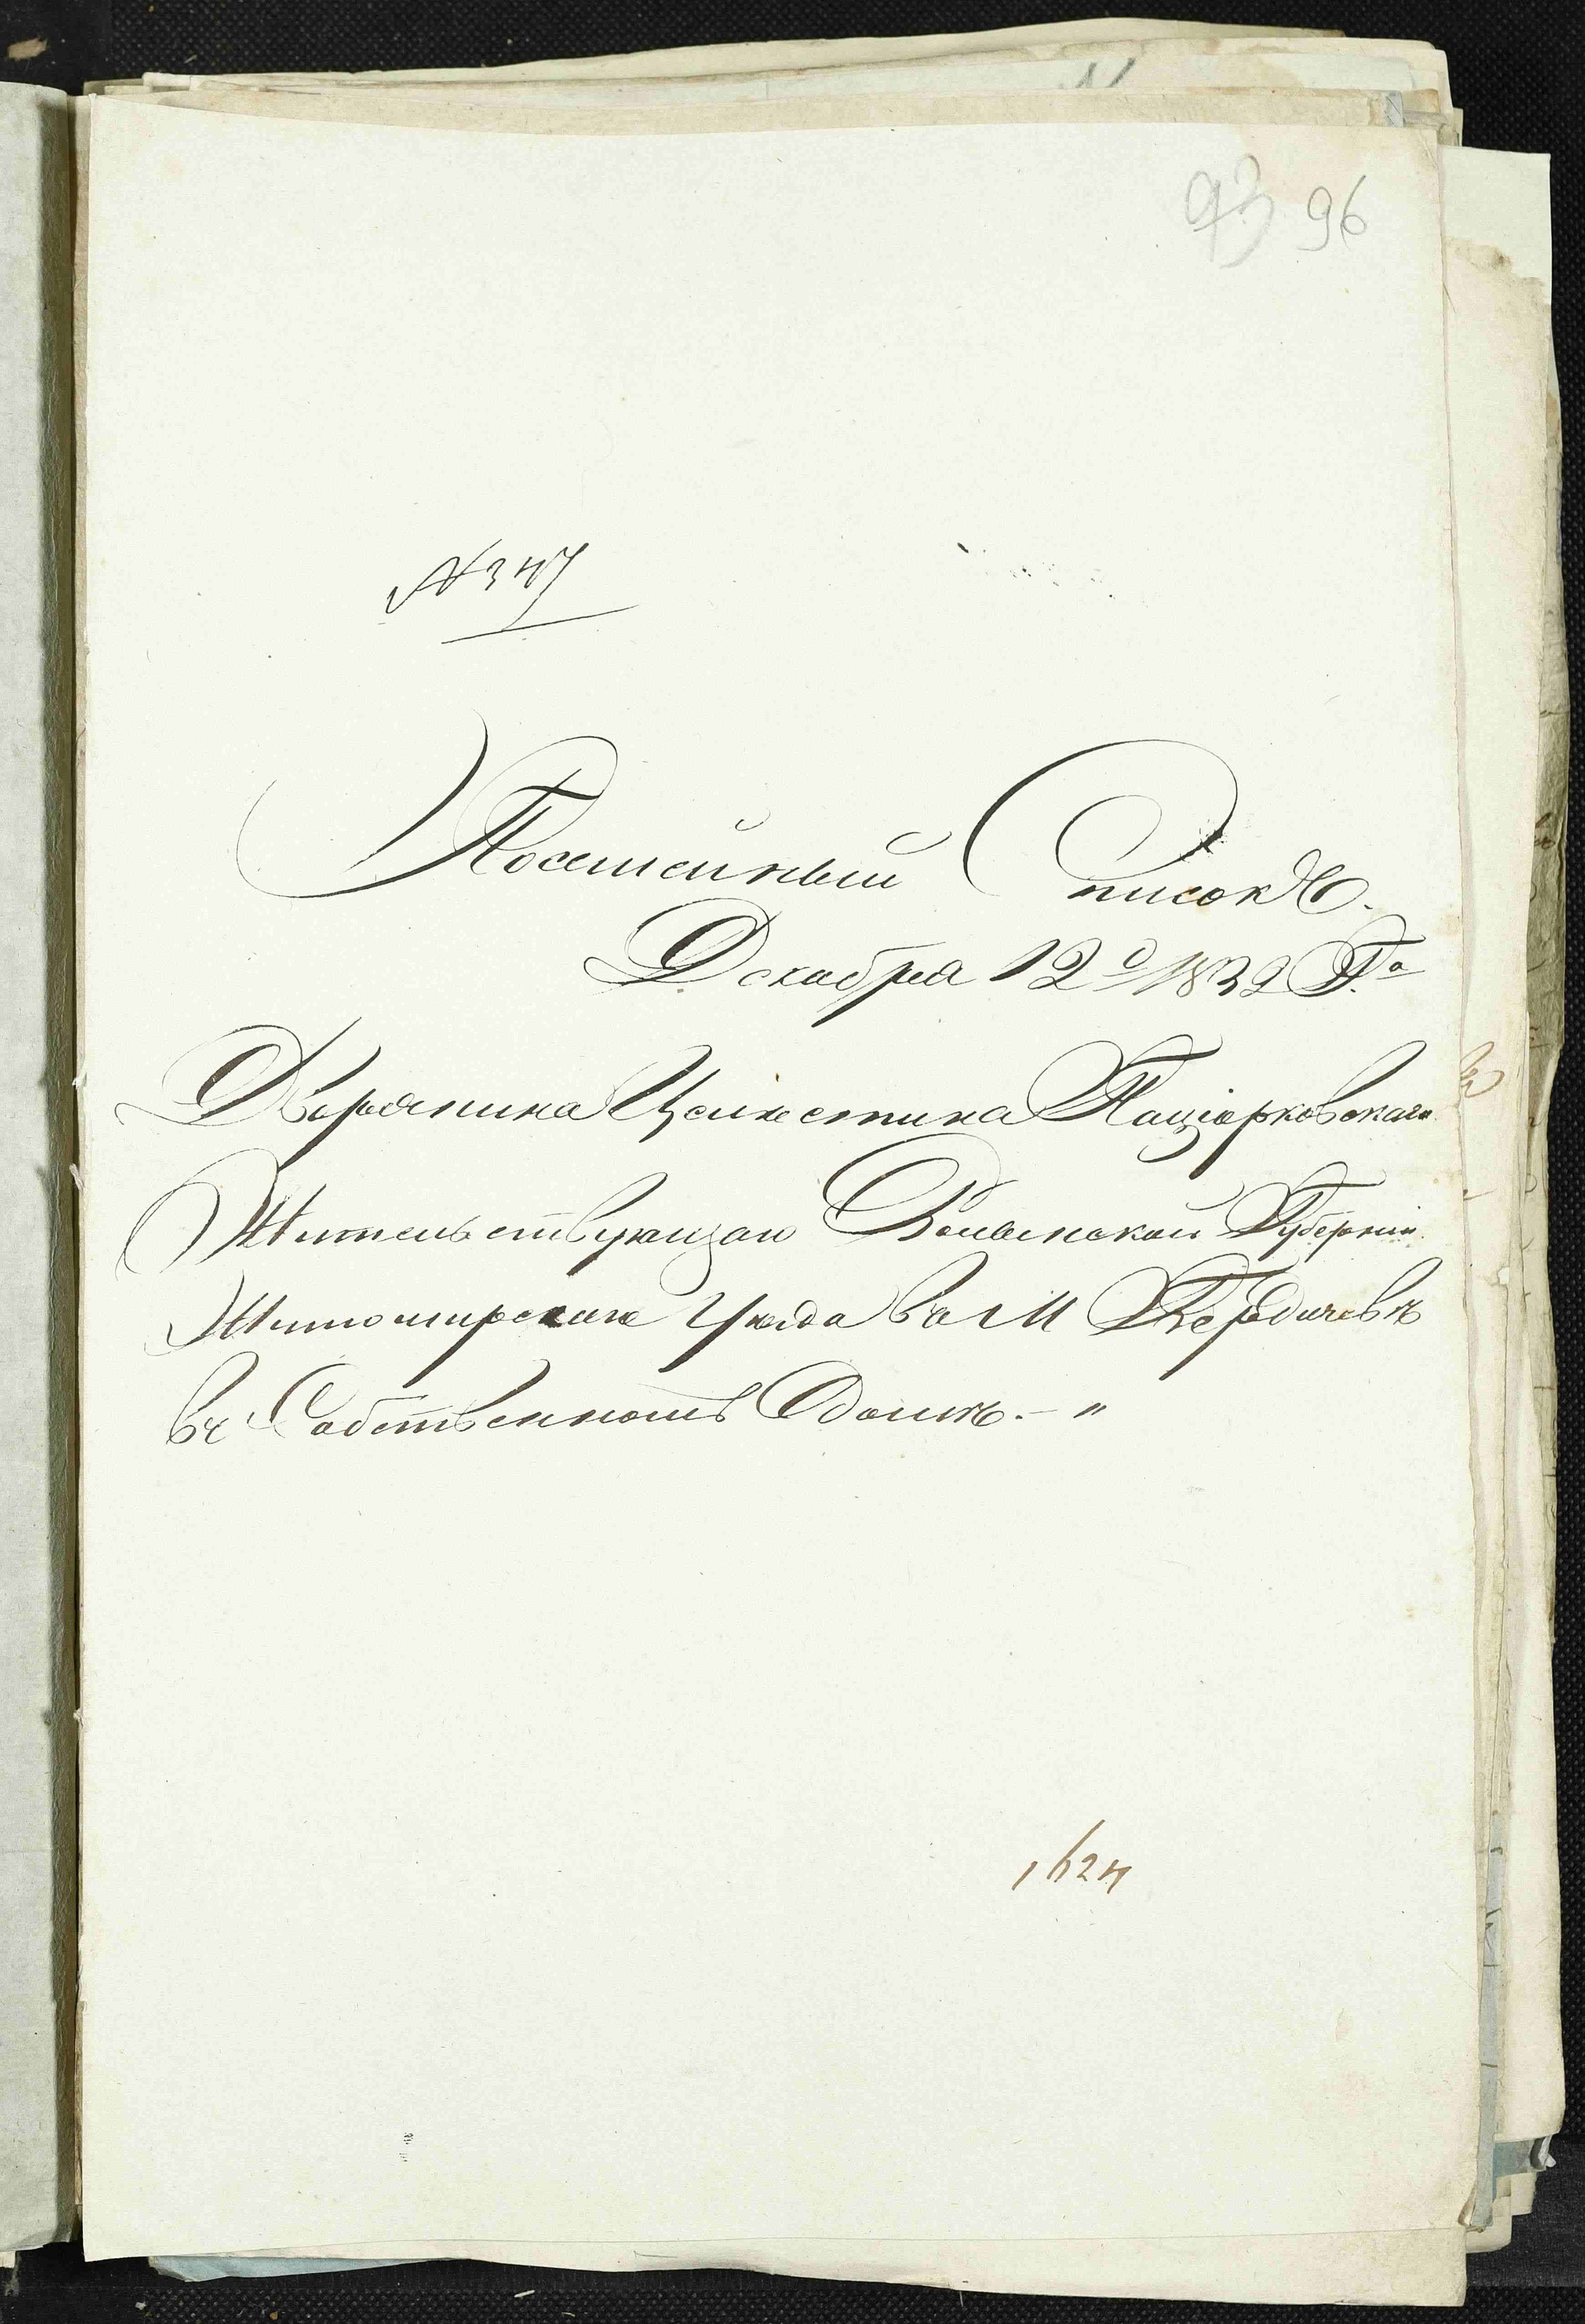 93 96
№ 347
Посемейный Списокъ.
Декабря 12º 1832 Гº
Дворянина Целестина Паціорковскаго
Жительствующаго Волынской Губерніи
Житомирскаго Уѣзда въ М Бердичевѣ
въ Собственномъ Домѣ. – "
1624